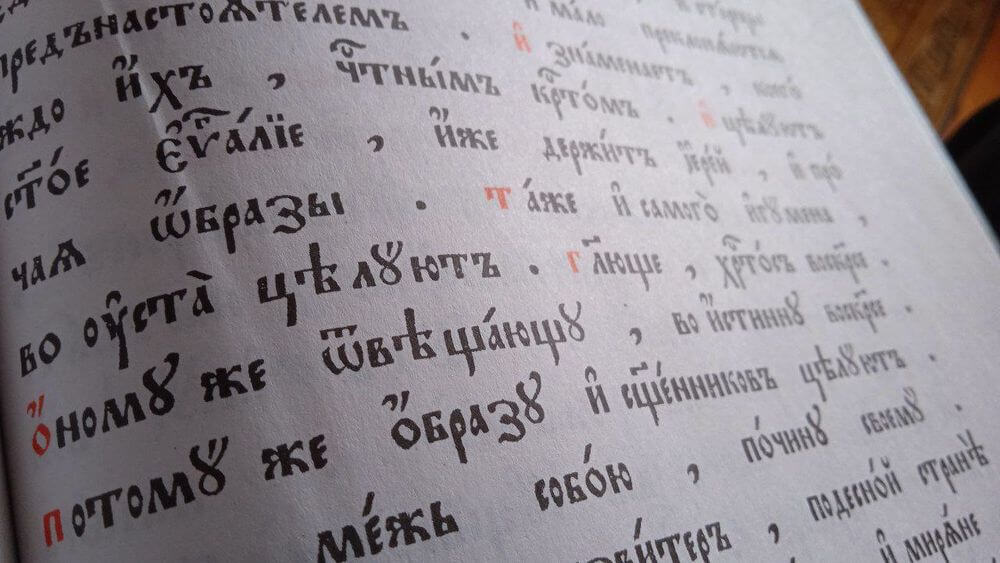 предънастоѧтелемъ . и҆ мало
ждо и҆́хъ , чⷭ҇тны́мъ крⷭ҇то́мъ . и҆ цѣлꙋютъ
ст҃о́е є҆ѵⷢ҇а́лїе , и҆́же держи́тъ і҆ере́й , и҆ про́
чаѧ ѡ҆́бразы . та́же и҆ самого̀ и҆гꙋ́мена ,
во оу҆ста̀ цѣлꙋ́ютъ . гл҃юще , хрⷭ҇то́съ воскр҃се .
о҆́номꙋ же ѿвѣща́ющꙋ , во и҆́стиннꙋ воскр҃се .
потомꙋ́ же о҆́бразꙋ и҆ сщ҃е́нниковъ цѣлꙋ́ютъ
ме́жь собо́ю , по́чинꙋ своемꙋ̀ .
подесно́й странѣ̀
и҆ мирѧ́не